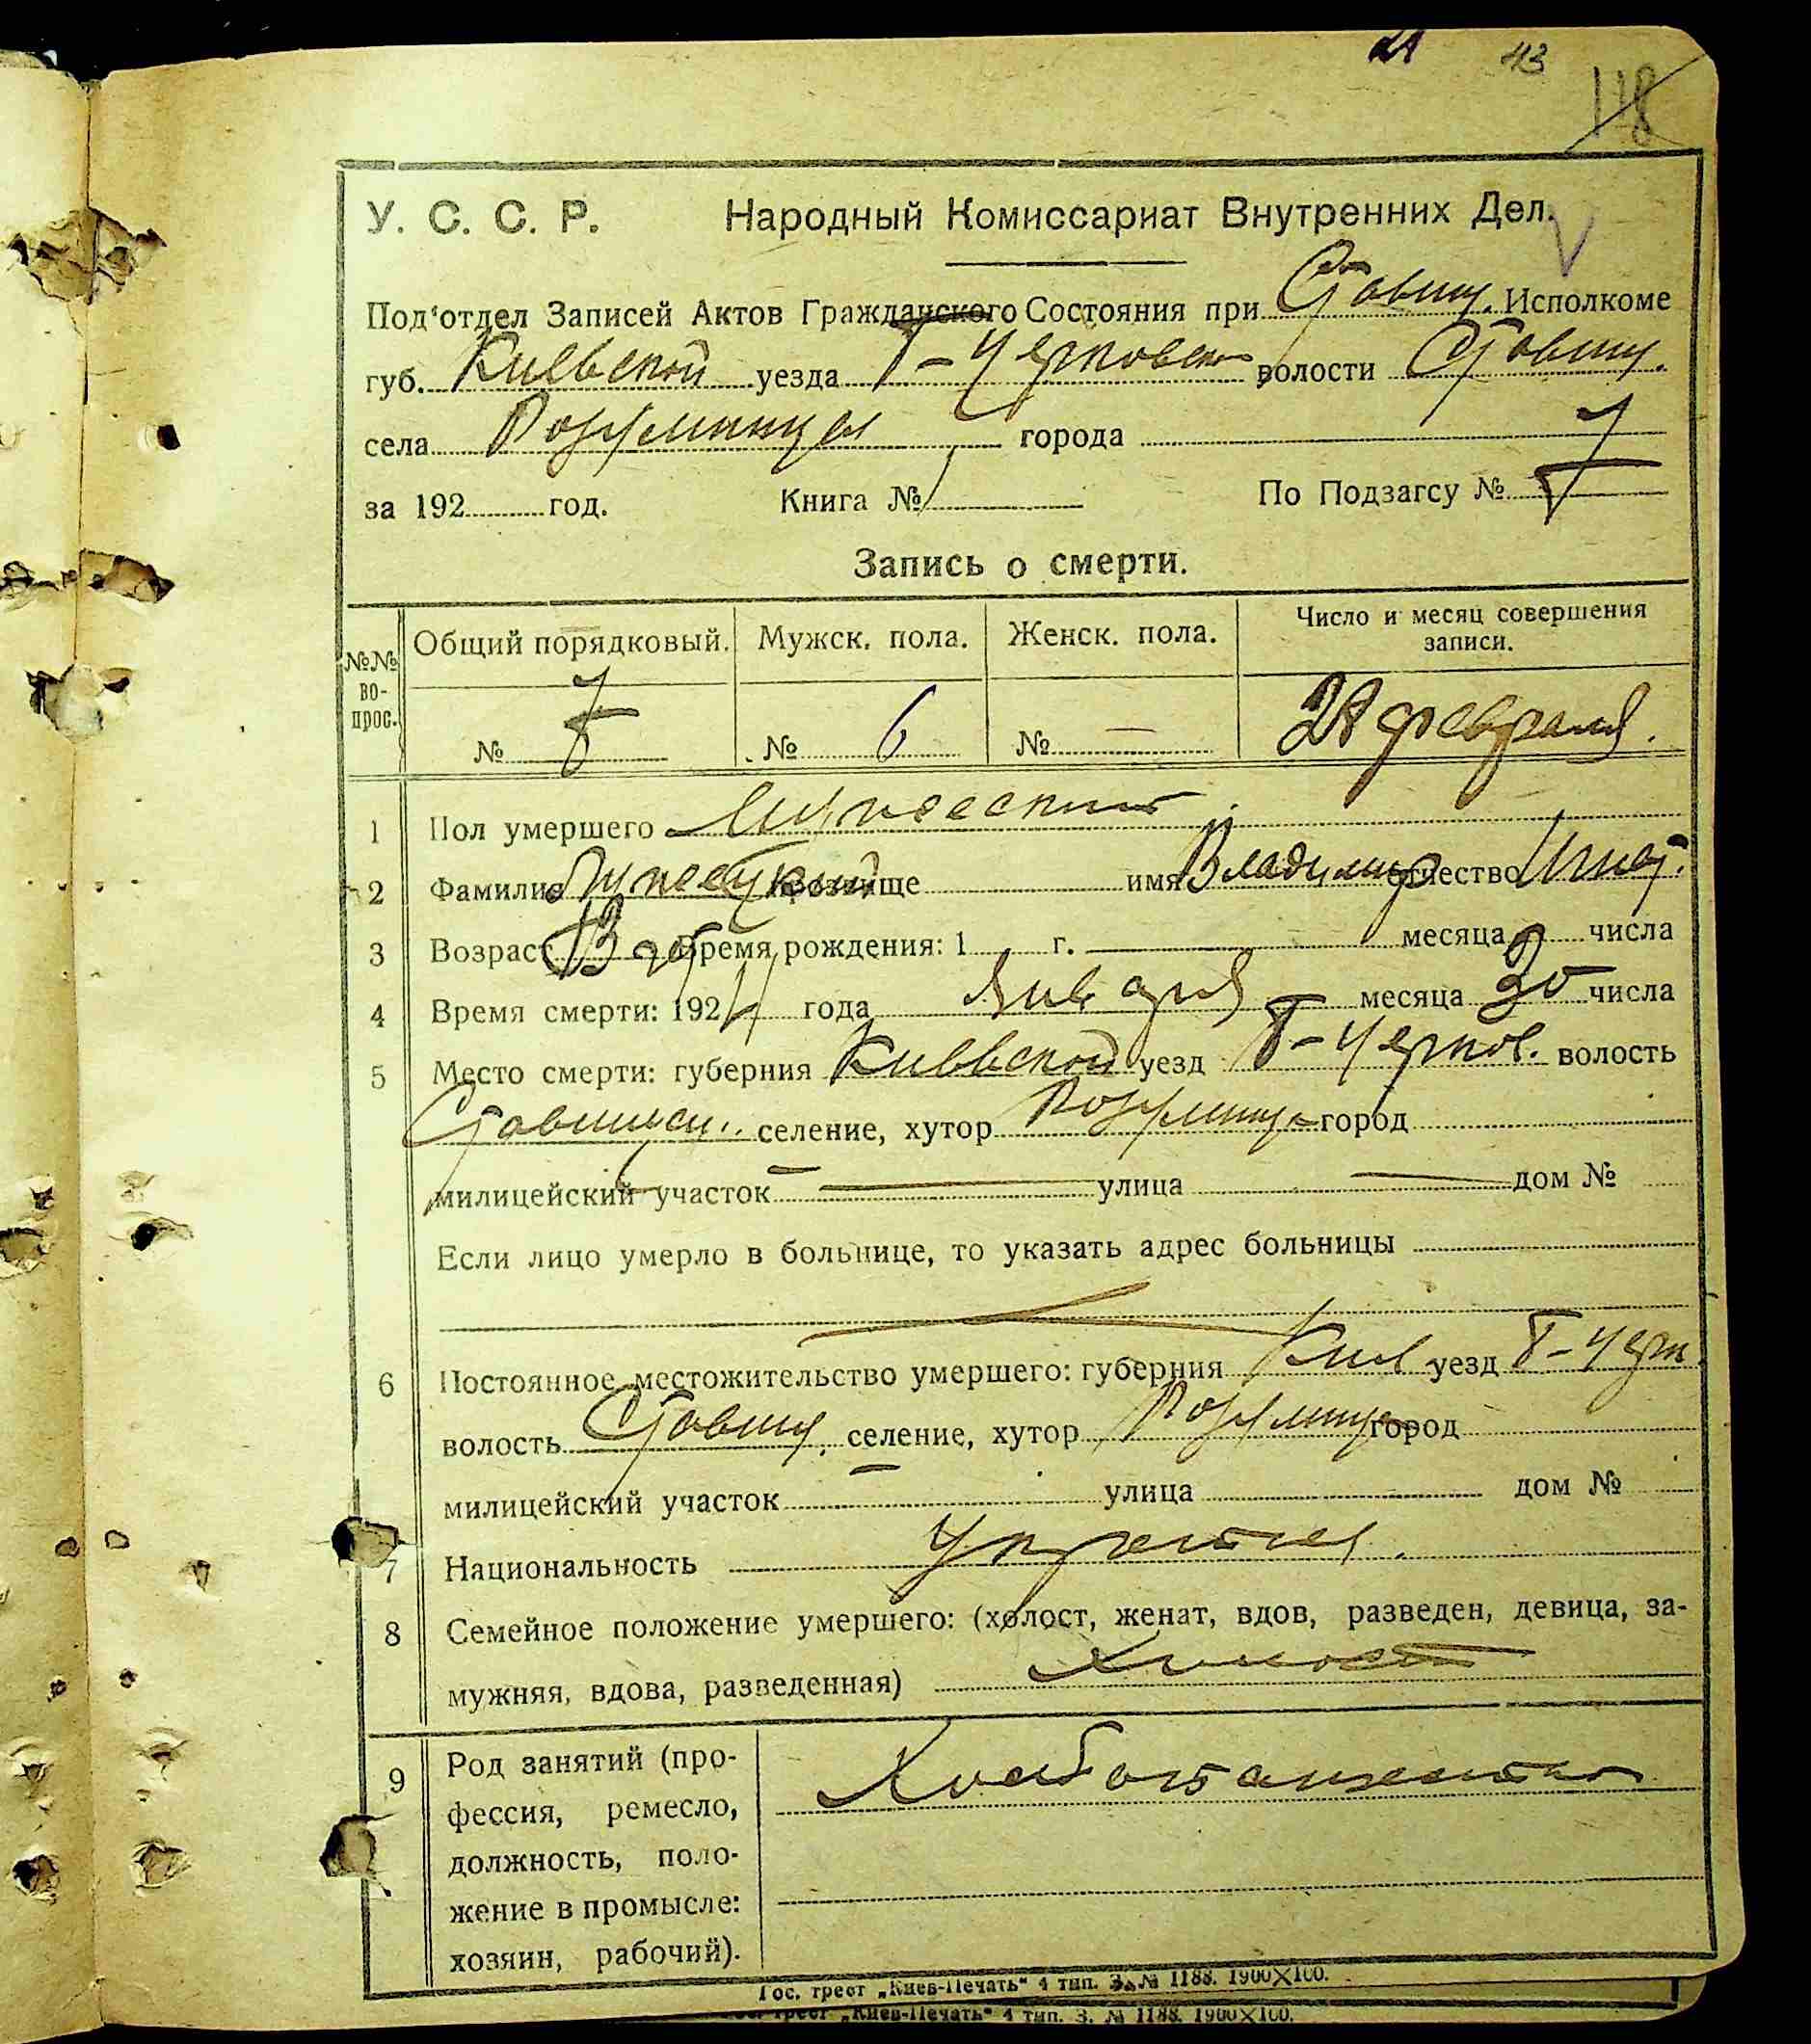 43
118
У. С. С. Р. Народный Комиссариат Внутренних Дел.
Под'отдел Записей Актов Гражданского Состояния при Ставищ. Исполкоме
губ. Киевской уезда Б-Черковско волости Ставищ.
села города
за 192 год. Книга № По Подзагсу № 7
Запись о смерти.
№№ во- прос. Общий порядковый. Мужск. пола. Женск. пола. Число и месяц совершения записи.
№ 7 № 6 № — 28 февраля.
1 Пол умершего Мужеский
2 Фамилия прозвище имя Владимир отчество Игнат.
3 Возраст Время рождения: 1 г. — месяца числа
4 Время смерти: 1924 года Января месяца 30 числа
5 Место смерти: губерния Киевской уезд Б-Черков. волость
селение, хутор город
милицейский участок — улица — дом №
Если лицо умерло в больнице, то указать адрес больницы
6 Постоянное местожительство умершего: губерния Киев уезд Б-Черк
волость Ставищ. селение, хутор город
милицейский участок — улица дом №
7 Национальность
8 Семейное положение умершего: (холост, женат, вдов, разведен, девица, за-
мужняя, вдова, разведенная) Холост
9 Род занятий (про-
фессия, ремесло,
должность, поло-
жение в промысле:
хозяин, рабочий).
Гос. трест „Киев-Печать“ 4 тип. З. № 1188. 1900×100.
Гос. трест „Киев-Печать“ 4 тип. З. № 1188. 1900×100.